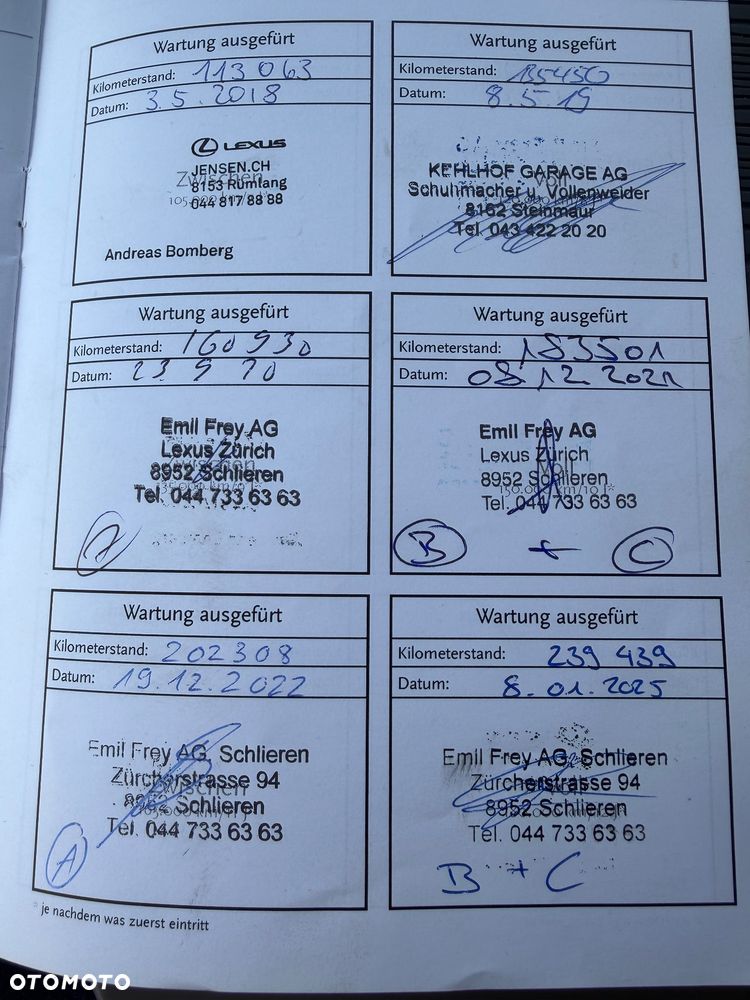 Wartung ausgefürt
Kilometerstand: 113 063
Datum: 3.5.2018
LEXUS
JENSEN.CH
Zwischen
8153 Rümlang
105.000
044 817 88 88
Andreas Bomberg
Wartung ausgefürt
Kilometerstand: 135450
Datum: 8.5.19
KEHLHOF GARAGE AG
Schuhmacher u. Vollenweider
8162 Steinmaur
Tel. 043 422 20 20
Wartung ausgefürt
Kilometerstand: 160 930
Datum: 23 9 20
Emil Frey AG
Lexus Zürich
Zwischen
8952 Schlieren
135.000 km/9 J*
Tel. 044 733 63 63
A
Wartung ausgefürt
Kilometerstand: 183501
Datum: 08.12.2021
Emil Frey AG
Lexus Zürich
Voll
8952 Schlieren
150.000 km/10 J*
Tel. 044 733 63 63
B + C
Wartung ausgefürt
Kilometerstand: 202308
Datum: 19.12.2022
Emil Frey AG, Schlieren
Zürcherstrasse 94
Zwischen
8952 Schlieren
165.000 km/11 J*
Tel. 044 733 63 63
A
Wartung ausgefürt
Kilometerstand: 239 439
Datum: 8.01.2025
Emil Frey AG, Schlieren
Zürcherstrasse 94
Voll
8952 Schlieren
Tel. 044 733 63 63
B + C
* je nachdem was zuerst eintritt
OTOMOTO